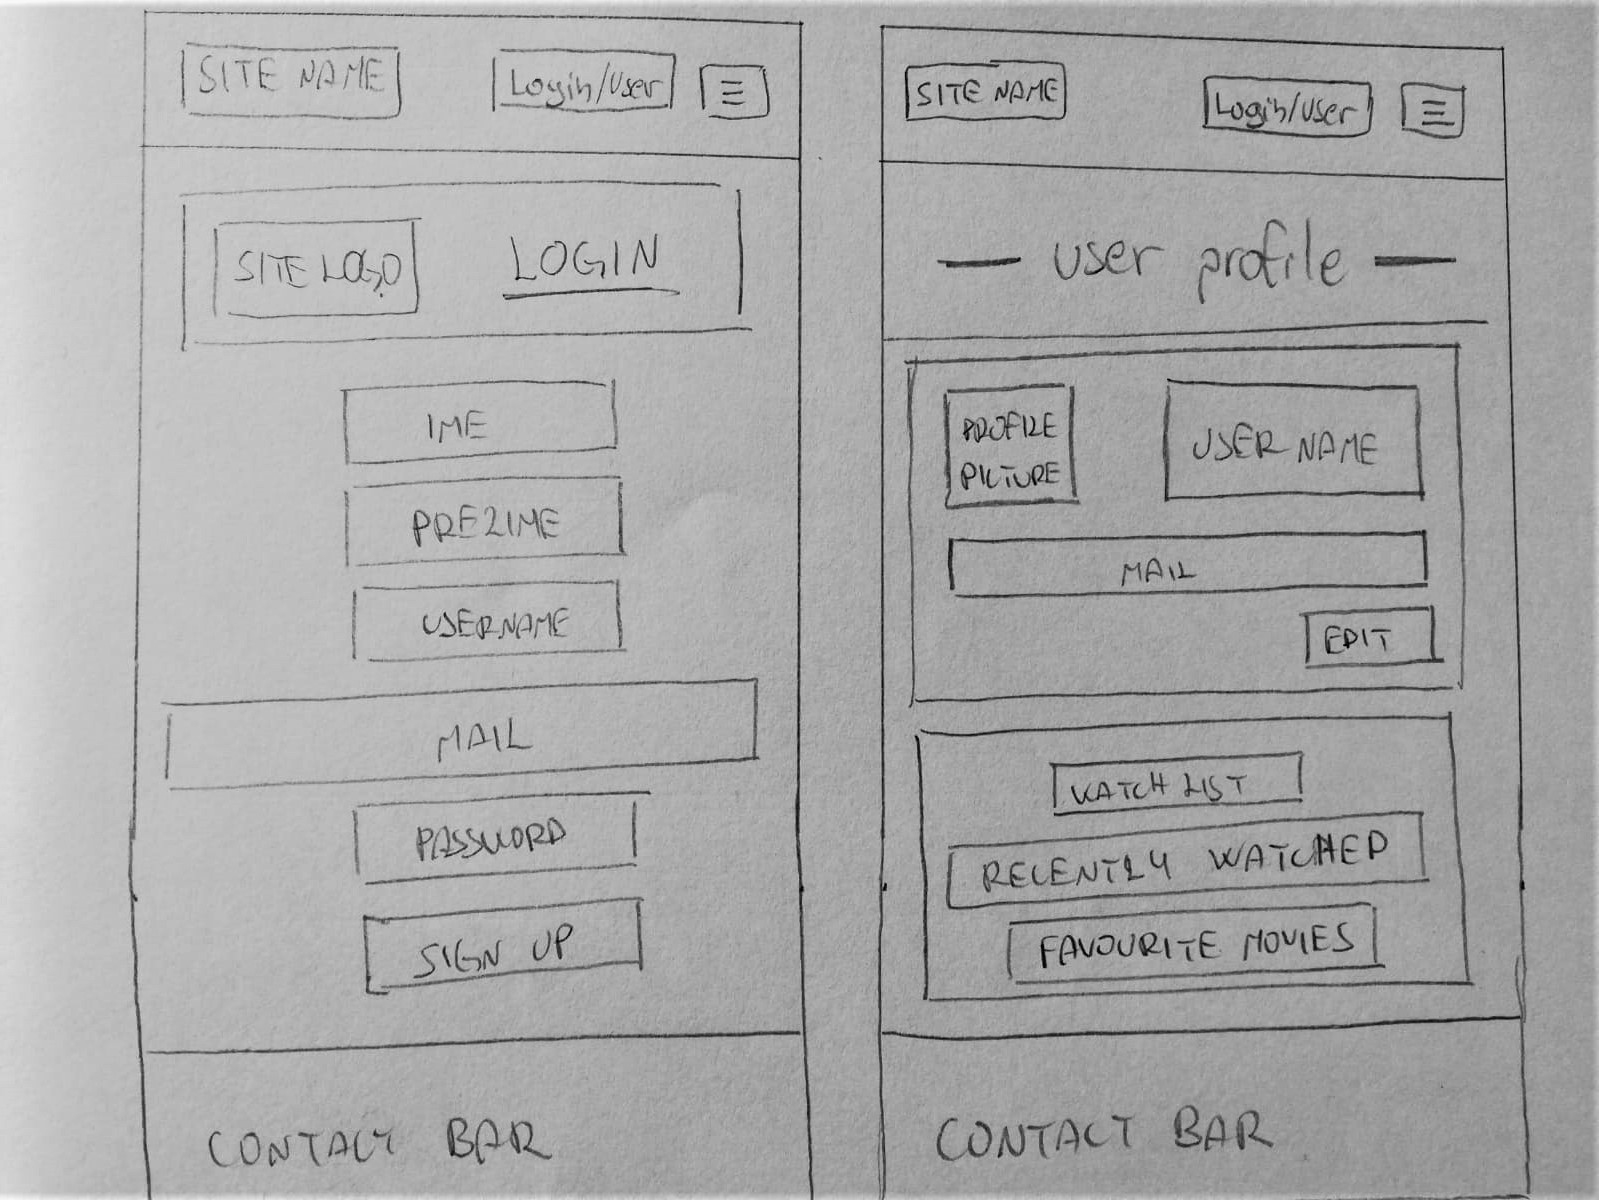 SITE NAME
Login/User
SITE LOGO
LOGIN
IME
PREZIME
USERNAME
MAIL
PASSWORD
SIGN UP
CONTACT BAR
SITE NAME
Login/User
user profile
PROFILE
PICTURE
USER NAME
MAIL
EDIT
WATCH LIST
RECENTLY WATCHED
FAVOURITE MOVIES
CONTACT BAR